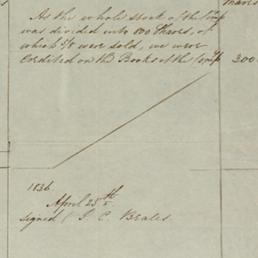 shares
As the whole stock of the Comp
was divided into 800 shares, of
which 5/8 were sold, we were
Credited on the Books of the Comp 300
1836.
April 25th
signed ( J. C. Beales.